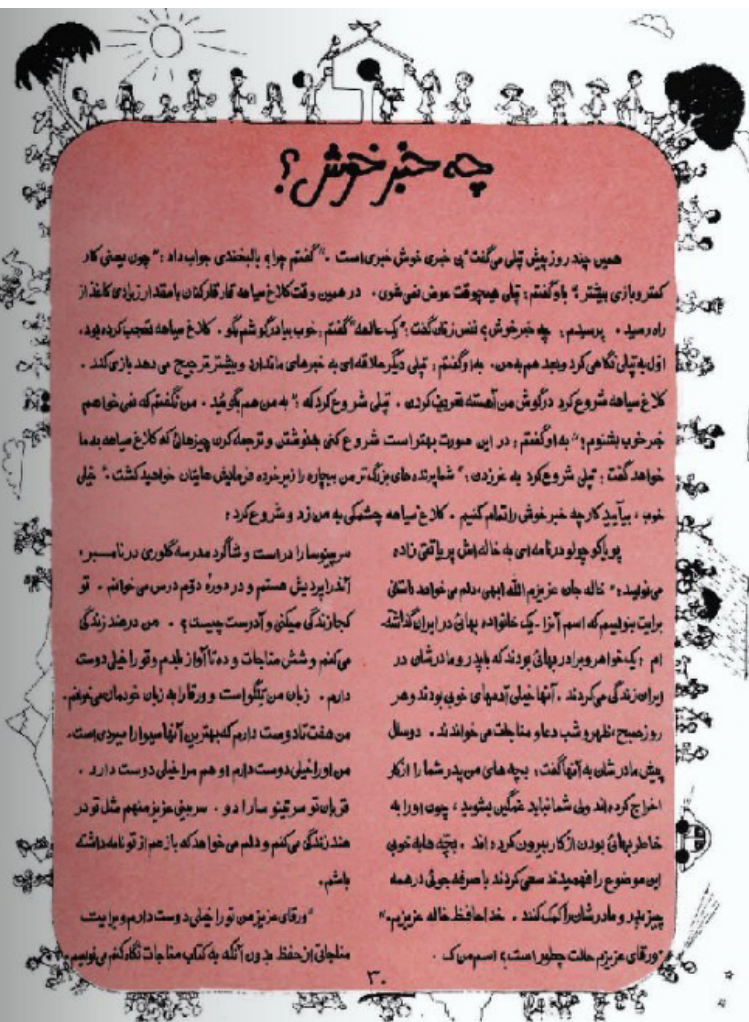 چه خبر خوش؟
همین چند روز پیش تپلی می‌گفت "بی خبری خوش خبری است." گفتم چرا؟ با لبخندی جواب داد: "چون یعنی کار
کمتر و بازی بیشتر؟" باو گفتم: تپلی هیچوقت عوض نمی‌شوی. در همین وقت کلاغ سیاهه قارقارکنان با مقدار زیادی کاغذ از
راه رسید. پرسیدم: چه خبر خوش؟ نفس زنان گفت: "یک عالمه" گفتم: خوب بیا در گوشم بگو. کلاغ سیاهه تعجب کرده بود.
اول به تپلی نگاهی کرد و بعد هم به من. به او گفتم: تپلی دیگر علاقه‌ای به خبرهای ما ندارد و بیشتر ترجیح می دهد بازی کند.
کلاغ سیاهه شروع کرد در گوش من آهسته تعریف کردن. تپلی شروع کرد که: "به من هم بگوئید. من نگفتم که نمی خواهم
خبر خوب بشنوم؟" به او گفتم: در این صورت بهتر است شروع کنی به نوشتن و ترجمه کردن چیزهائی که کلاغ سیاهه به ما
خواهد گفت: تپلی شروع کرد به غر زدن: "شما پرنده های بزرگتر من بیچاره را زیر خرده فرمایش هایتان خواهید کشت." خیلی
خوب، بیآیید کار چه خبر خوش را تمام کنیم. کلاغ سیاهه چشمکی به من زد و شروع کرد:
پویا کوچولو در نامه ای به خاله اش پریا تقی زاده
می‌نویسد: "خاله جان عزیزم الله ابهی، دلم می خواهد داستانی
برایت بنویسم که اسم آنرا - یک خانواده بهائی در ایران گذاشته-
ام: یک خواهر و برادر بهائی بودند که با پدر و مادرشان در
ایران زندگی می‌کردند. آنها خیلی آدمهای خوبی بودند و هر
روز صبح، ظهر و شب دعا و مناجات می خواندند. دو سال
پیش مادرشان به آنها گفت: بچه های من پدر شما را از کار
اخراج کرده اند ولی شما نباید غمگین بشوید، چون او را به
خاطر بهائی بودن از کار بیرون کرده اند. بچّه ها به خوبی
این موضوع را فهمیدند سعی کردند با صرفه جوئی در همه
چیز پدر و مادرشان را کمک کنند. خداحافظ خاله عزیزم."
"ورقای عزیزم حالت چطور است؟ اسم من ک.
سرپینوسا را در است و شاگرد مدرسه گلوری در نامسبر،
آندراپردیش هستم و در دورهٔ دوّم درس می خوانم. تو
کجا زندگی میکنی و آدرست چیست؟. من در هند زندگی
می‌کنم و شش مناجات و ده تا آواز بلدم و تو را خیلی دوست
دارم. زبان من تِلِگو است و ورقا را به زبان خودمان می‌خوانم.
من هفت تا دوست دارم که بهترین آنها سیوا را میردی است.
من او را خیلی دوست دارم او هم مرا خیلی دوست دارد.
قربان تو سرتینو سارا دو. سربینی عزیز منهم مثل تو در
هند زندگی می‌کنم و دلم می خواهد که باز هم از تو نامه داشته
باشم.
"ورقای عزیز من تو را خیلی دوست دارم و برایت
مناجاتی از حفظ بدون آنکه به کتاب مناجات نگاه کنم می‌نویسم.
۳۰